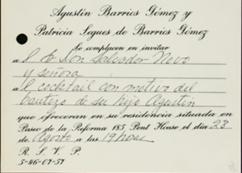 Agustín Barrios Gómez y
Patricia Segues de Barrios Gómez
Se complacen en invitar
a S. E. Don Salvador Novo
y señora
al cocktail con motivo del
bautizo de su hijo Agustín
que ofrecerán en su residencia situada en
Paseo de la Reforma 185 Pent House el día 23
de Agosto a las 19 horas
R. S. V. P.
5-46-07-57